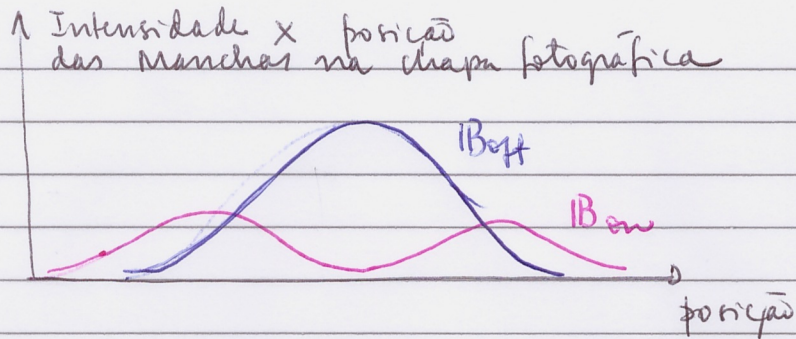 Intensidade x posição
das manchas na chapa fotográfica
IB off
IB on
posição